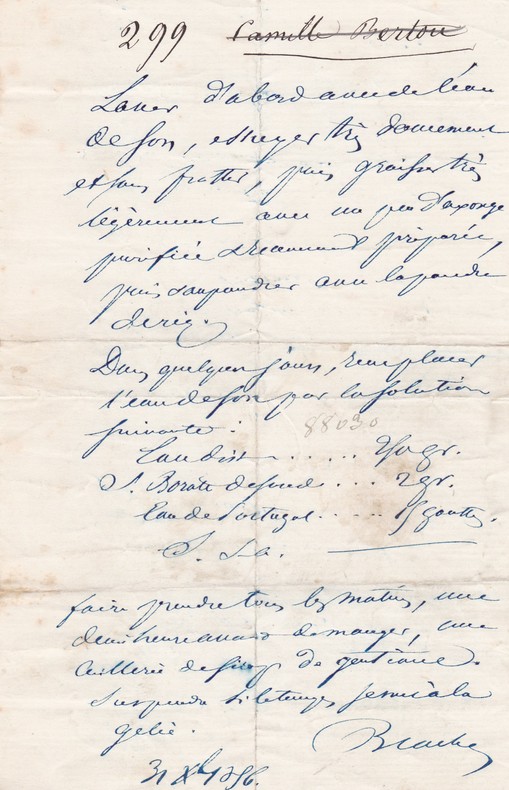 299 Camille Berton
Laver d'abord avec de l'eau
de son, essuyer très doucement
et sans frotter, puis graisser très
légèrement avec un peu d'axonge
purifiée récemment préparée,
puis saupoudrer avec la poudre
de riz.
Dans quelques jours, remplacer
l'eau de son par la solution
suivante :
88030
Eau dist ..... 250 gr.
S. Borate de soude ... 2 gr.
Eau de Portugal ..... 15 gouttes.
S. S. a.
faire prendre tous les matins, une
demi heure avant de manger, une
cuillerée de sirop de gentiane.
Suspendre si le temps se mit à la
gelée.